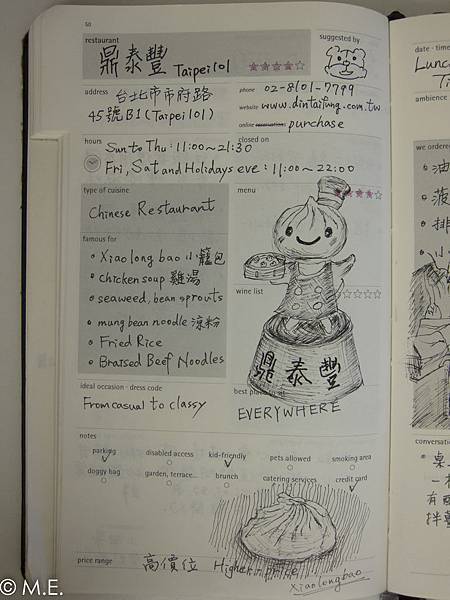 50
restaurant
suggested by
鼎泰豐 Taipei 101
address
台北市市府路
45號B1 (Taipei 101)
phone 02-8101-7799
website www.dintaifung.com.tw
online reservations purchase
hours
closed on
Sun to Thu : 11:00~21:30
Fri, Sat and Holidays eve : 11:00~22:00
type of cuisine
Chinese Restaurant
menu
famous for
Xiao long bao 小籠包
chicken soup 雞湯
seaweed, bean sprouts
mung bean noodle 涼粉
Fried Rice
Braised Beef Noodles
wine list
鼎泰豐
ideal occasion - dress code
From casual to classy
best place to sit
EVERYWHERE
notes
parking
disabled access
kid-friendly
pets allowed
smoking area
doggy bag
garden, terrace...
brunch
catering services
credit card
price range
高價位 Higher price
Xiaolongbao
date - time
Lunch
Ti
ambience
we ordered
油
菠
排
小
conversation
桌
一
有
拌
© M.E.